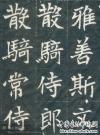 雅善斯
散騎侍郎
散騎常侍